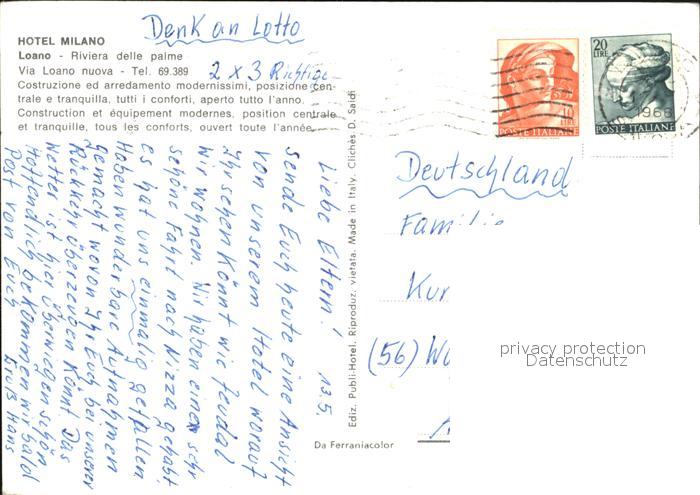 Denk an Lotto
2 x 3 Richtige
HOTEL MILANO
Loano - Riviera delle palme
Via Loano nuova - Tel. 69.389
Costruzione ed arredamento modernissimi, posizione cen-
trale e tranquilla, tutti i conforti, aperto tutto l'anno.
Construction et équipement modernes, position centrale
et tranquille, tous les conforts, ouvert toute l'année.
13.5.
Liebe Eltern!
Sende Euch heute eine Ansicht
von unserem Hotel worauf
Ihr sehen könnt wie feudal
wir wohnen. Wir haben eine sehr
schöne Fahrt nach Nizza gehabt
es hat uns einmalig gefallen
Haben wunderbare Aufnahmen
gemacht wovon Ihr Euch bei unserer
Rückkehr überzeugen könnt. Das
Wetter ist hier überwiegend schön
Hoffendlich bekommen wir bald
Post von Euch
Gruß Hans
Ediz. Publi-Hotel. Riproduz. vietata. Made in Italy. Clichès D. Saidi
Da Ferraniacolor
POSTE ITALIANE
20 LIRE
POSTE ITALIANE
1966
Deutschland
Familie
Kur
(56) Wu
privacy protection
Datenschutz